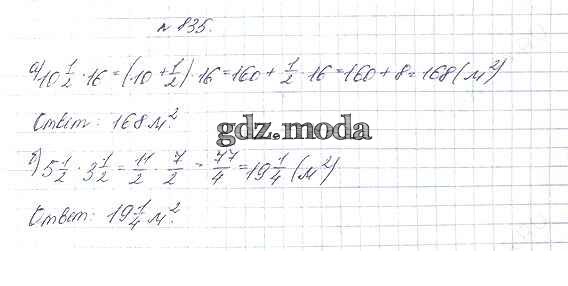 № 835.
а) 10 1/2 · 16 = (10 + 1/2) · 16 = 160 + 1/2 · 16 = 160 + 8 = 168 (м²)
Ответ: 168 м².
gdz.moda
б) 5 1/2 · 3 1/2 = 11/2 · 7/2 = 77/4 = 19 1/4 (м²)
Ответ: 19 1/4 м².